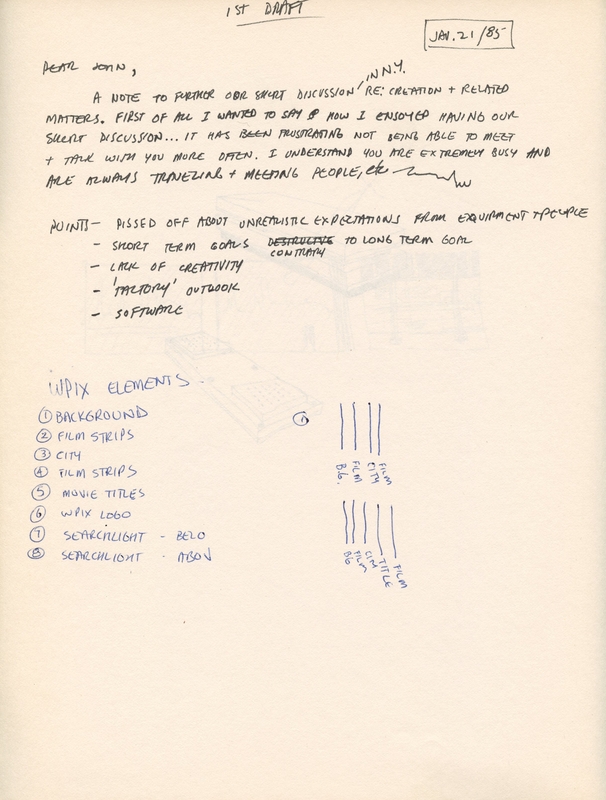 1ST DRAFT
JAN. 21/85
DEAR JOHN,
A NOTE TO FURTHER OUR SHORT DISCUSSION IN N.Y. RE: CREATION + RELATED
MATTERS. FIRST OF ALL I WANTED TO SAY HOW I ENJOYED HAVING OUR
SHORT DISCUSSION... IT HAS BEEN FRUSTRATING NOT BEING ABLE TO MEET
+ TALK WITH YOU MORE OFTEN. I UNDERSTAND YOU ARE EXTREMELY BUSY AND
ARE ALWAYS TRAVELING + MEETING PEOPLE, etc
POINTS - PISSED OFF ABOUT UNREALISTIC EXPECTATIONS FROM EQUIPMENT + PEOPLE
- SHORT TERM GOALS DESTRUCTIVE TO LONG TERM GOAL
CONTRARY
- LACK OF CREATIVITY
- 'FACTORY' OUTLOOK
- SOFTWARE
WPIX ELEMENTS -
① BACKGROUND
② FILM STRIPS
③ CITY
④ FILM STRIPS
⑤ MOVIE TITLES
⑥ WPIX LOGO
⑦ SEARCHLIGHT - BELO
⑧ SEARCHLIGHT - ABOV
①
B.G. FILM CITY FILM
BG FILM CITY TITLE FILM